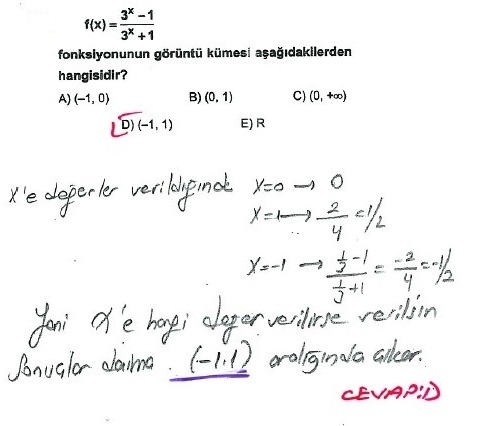 f(x) = (3^x - 1)/(3^x + 1)
fonksiyonunun görüntü kümesi aşağıdakilerden
hangisidir?
A) (-1, 0) B) (0, 1) C) (0, +∞)
D) (-1, 1) E) R
X'e değerler verildiğinde X=0 → 0
X=1 → 2/4 = 1/2
X=-1 → (1/3 - 1)/(1/3 + 1) = -2/4 = -1/2
Yani X'e hangi değer verilirse verilsin
Sonuçlar daima (-1,1) aralığında çıkar.
CEVAP:D